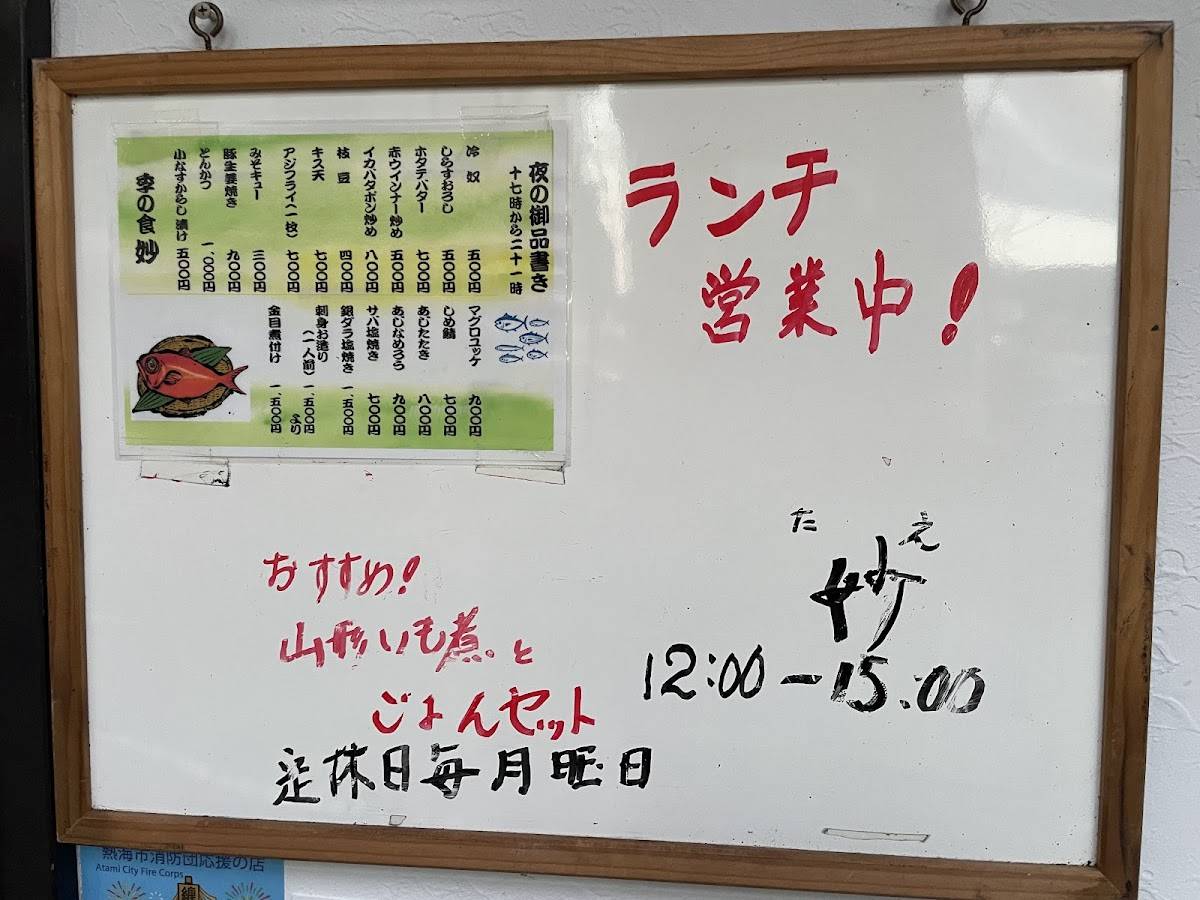 夜の御品書き
十七時から二十一時
冷奴 五〇〇円
しらすおろし 五〇〇円
ホタテバター 七〇〇円
赤ウインナー炒め 五〇〇円
イカバタポン炒め 八〇〇円
枝豆 四〇〇円
キス天 七〇〇円
アジフライ(一枚) 七〇〇円
みそキュー 三〇〇円
豚生姜焼き 九〇〇円
とんかつ 一、〇〇〇円
小なすからし漬け 五〇〇円
季の食 妙
マグロユッケ 九〇〇円
しめ鯖 七〇〇円
あじたたき 八〇〇円
あじなめろう 九〇〇円
サバ塩焼き 七〇〇円
銀ダラ塩焼き 一、五〇〇円
刺身お造り
(一人前) 一、五〇〇円 より
金目煮付け 一、五〇〇円
ランチ
営業中!
おすすめ!
山形いも煮と
ごはんセット
定休日毎月曜日
たえ
妙
12:00-15:00
熱海市消防団応援の店
Atami City Fire Corps
纏